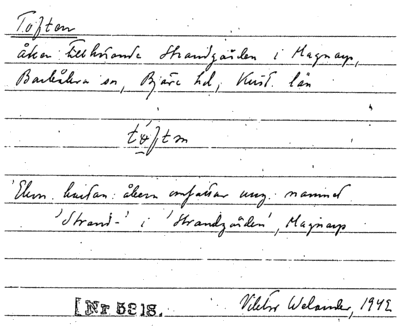 Toften
åker tillhörande Strandgården i Magnarp,
Barkåkra sn, Bjäre hd, Krist. län
Ekon. kartan: åkern omfattar ung. namnet
'Strand-' i 'Strandgården', Magnarp
[Nr 5218.
Viktor Welander, 1942